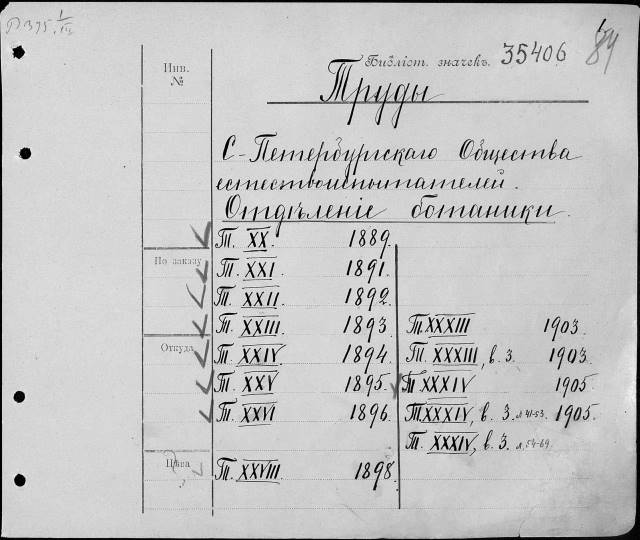 Инв.
№
Библіот. значекъ. 35406
84
Труды
С-Петербургскаго Общества
естествоиспытателей.
Отдѣленіе ботаники.
Т. XX. 1889.
По заказу
Т. XXI. 1891.
Т. XXII. 1892.
Т. XXIII. 1893.
Откуда
Т. XXIV. 1894.
Т. XXV. 1895.
Т. XXVI. 1896.
Цѣна
Т. XXVIII. 1898.
Т. XXXIII 1903.
Т. XXXIII, в. 3. 1903.
Т. XXXIV 1905.
Т. XXXIV, в. 3. л 41-53. 1905.
Т. XXXIV, в. 3. л. 54-69.